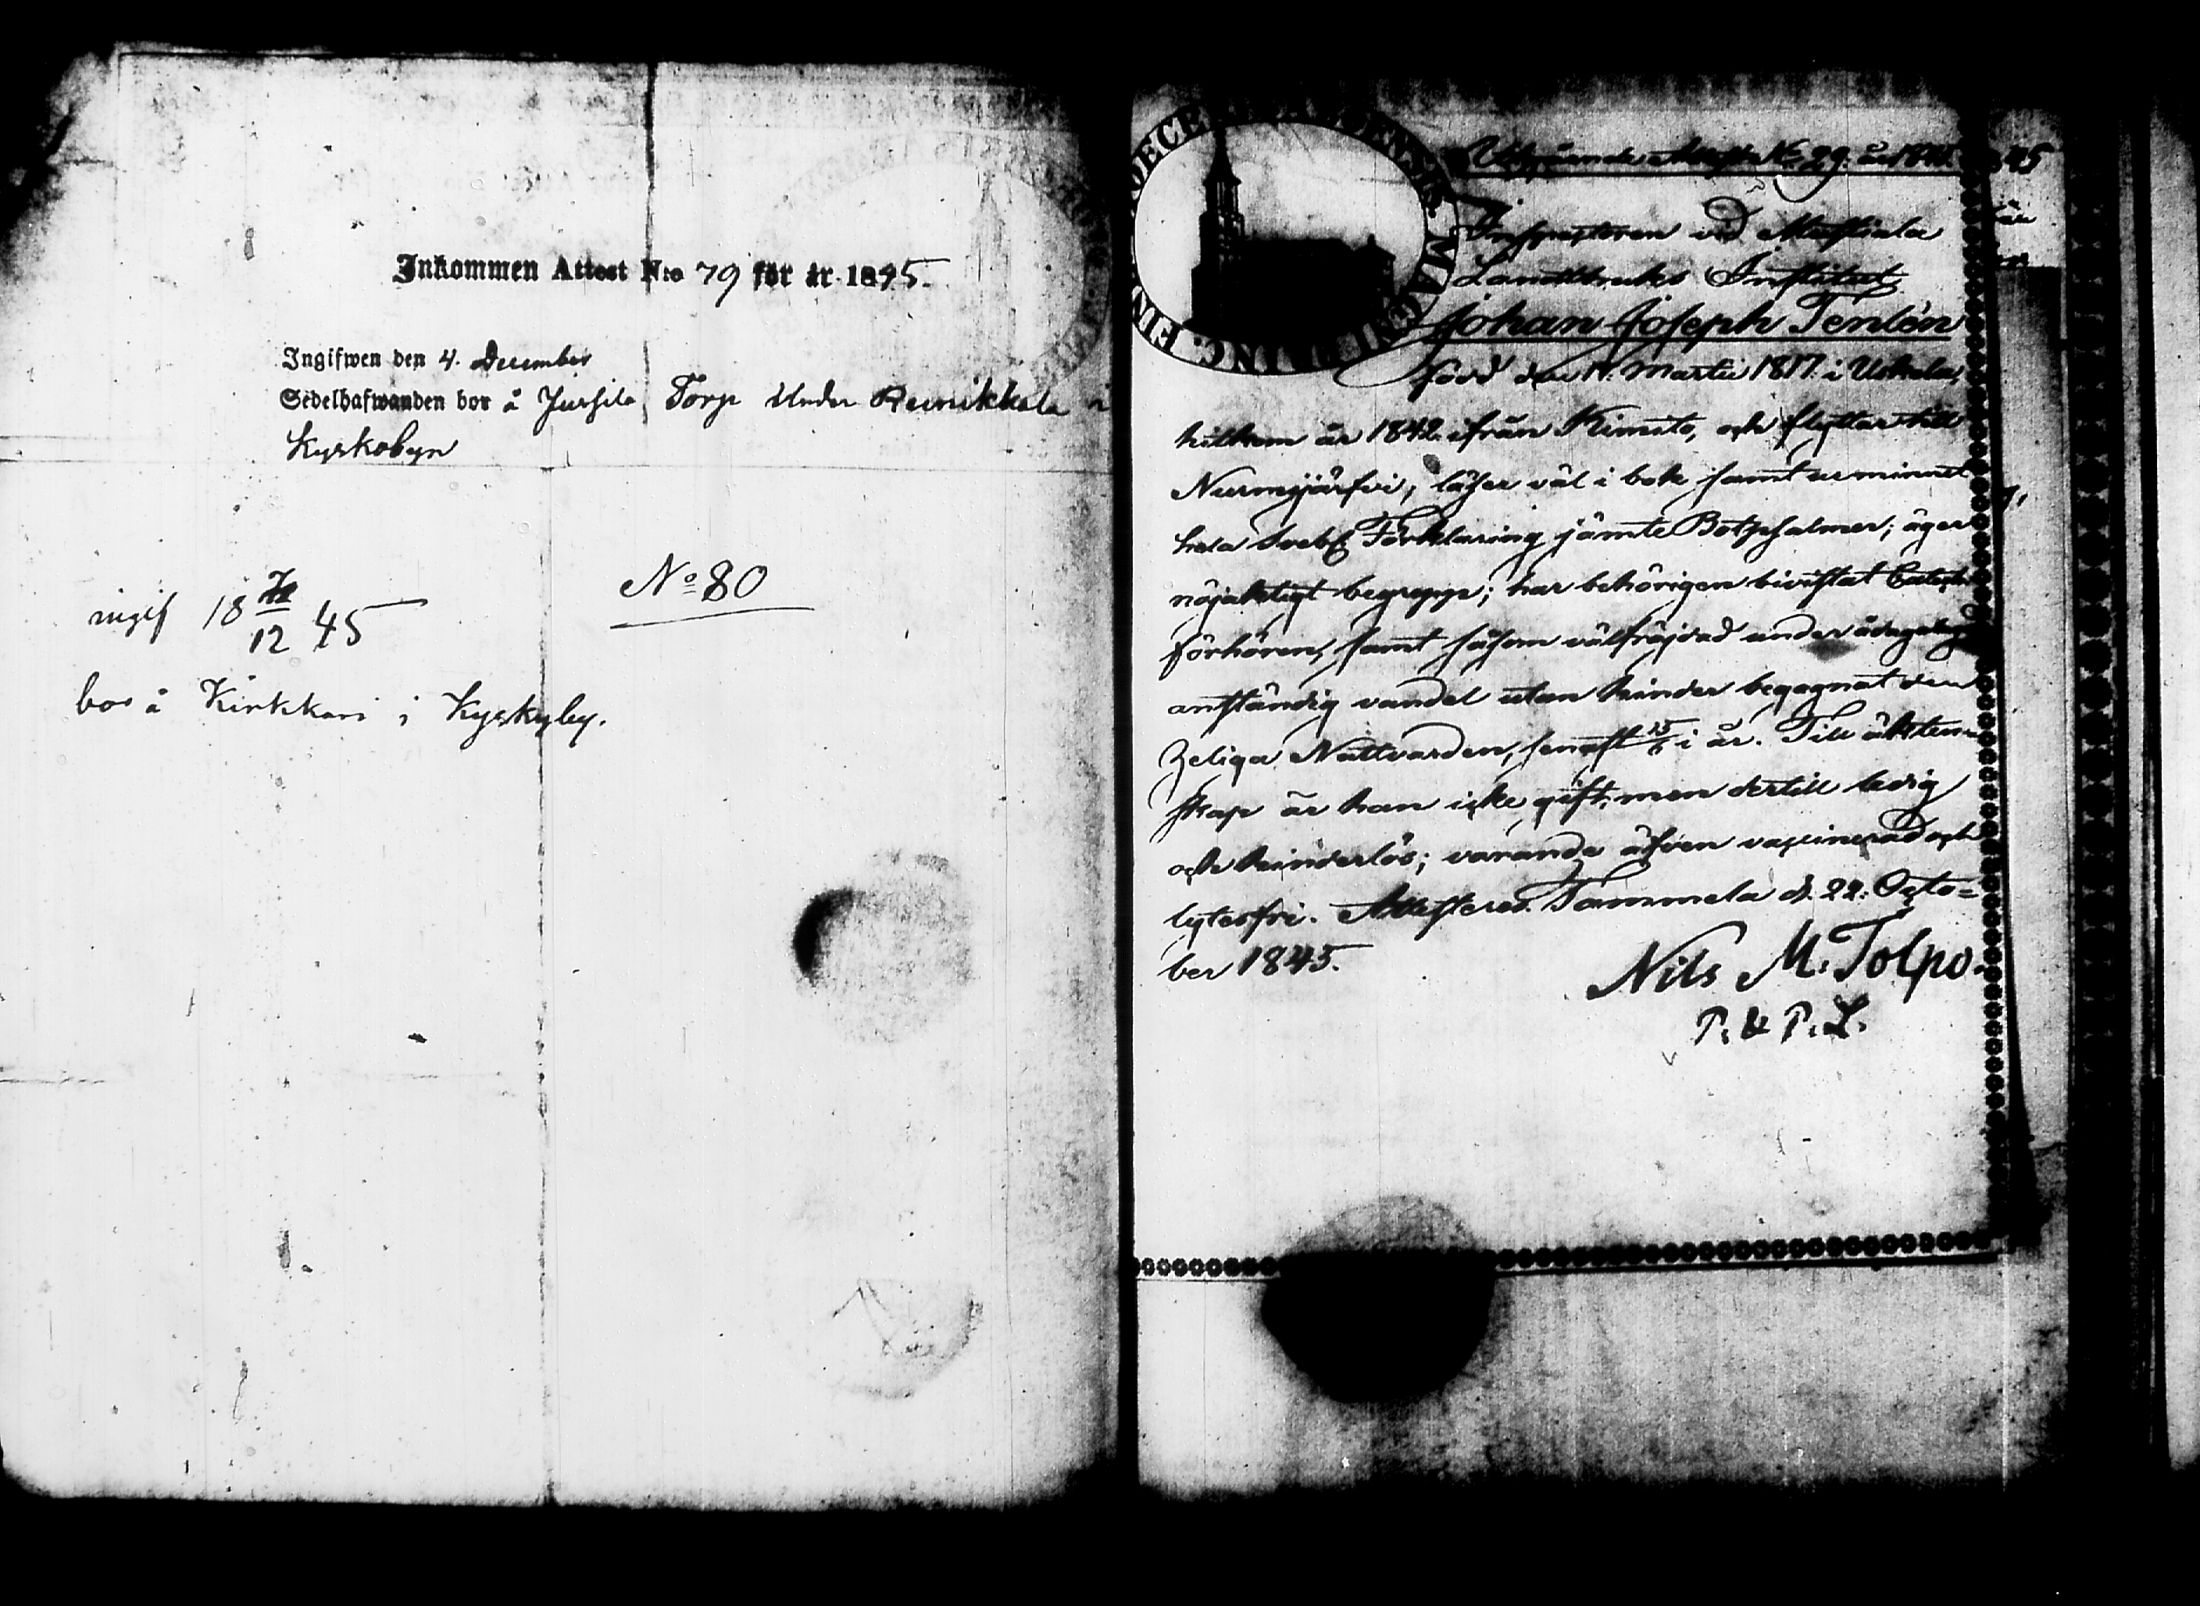 Inkommen Attest N:o 79 för år 1845.
Ingifwen den 4. December
Sedelhafwanden bor å Jursila Torp under Reinikkala
Kyrkobyn
N:o 80
ingif 18 12 45
bor å Kirkkari i Kyrkyby.
DIOECE MAGNI FINC. FIN
Utgående Attest No 29. år 1845.
Inspectoren vid Mustiala
Landtbruks Institut
Johan Joseph Tenlén
född den 11. Martii 1817. i Uskela,
hitkom år 1842. ifrån Kimito, och flyttar till
Nurmijärfvi, läser väl i bok samt ur minnet
hela Sveb. Förklaring jämte Botpsalmer; äger
nöjaktigt begrepp; har behörigen bivistat Catech
förhören, samt såsom välfräjdad under ådagalagd
anständig vandel utan hinder begagnat den
Heliga Nattvarden, senast 15/6 i år. Till äkten-
skap är han icke gift, men dertill ledig
och hinderlös; varande äfven vaccinerad och
lytesfri. Attesteras. Tammela d. 22. Octo=
ber 1845.
Nils M. Tolpo.
P. & P. L.